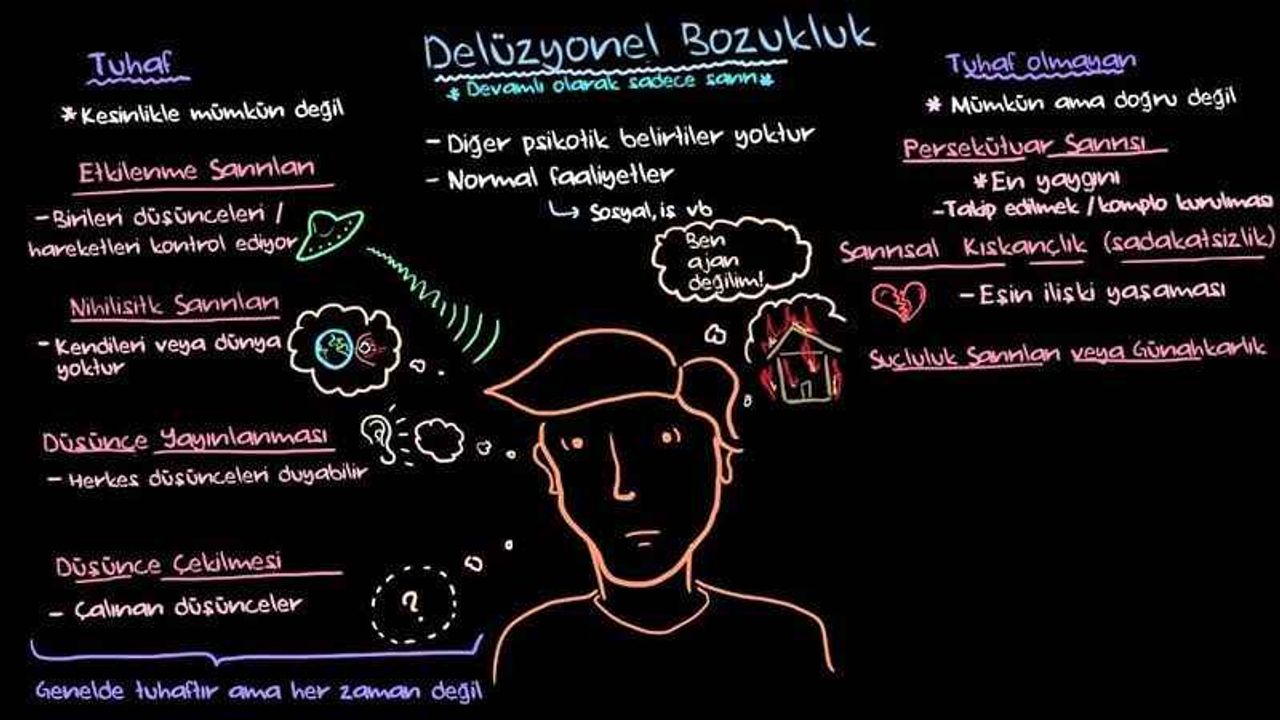 Delüzyonel Bozukluk
* Devamlı olarak sadece sanrı *
- Diğer psikotik belirtiler yoktur
- Normal faaliyetler
↳ Sosyal, is vb
Tuhaf
* Kesinlikle mümkün değil
Etkilenme Sanrıları
- Birileri düşünceleri /
hareketleri kontrol ediyor
Nihilisitk Sanrıları
- Kendileri veya dünya
yoktur
Düşünce Yayınlanması
- Herkes düşünceleri duyabilir
Düşünce Çekilmesi
- Çalınan düşünceler
?
Genelde tuhaftır ama her zaman değil
Ben
ajan
değilim!
Tuhaf olmayan
* Mümkün ama doğru değil
Persekütuar Sanrısı
* En yaygını
- Takip edilmek / komplo kurulması
Sanrısal Kıskançlık (sadakatsizlik)
- Eşin ilişki yaşaması
Suçluluk Sanrıları veya Günahkarlık